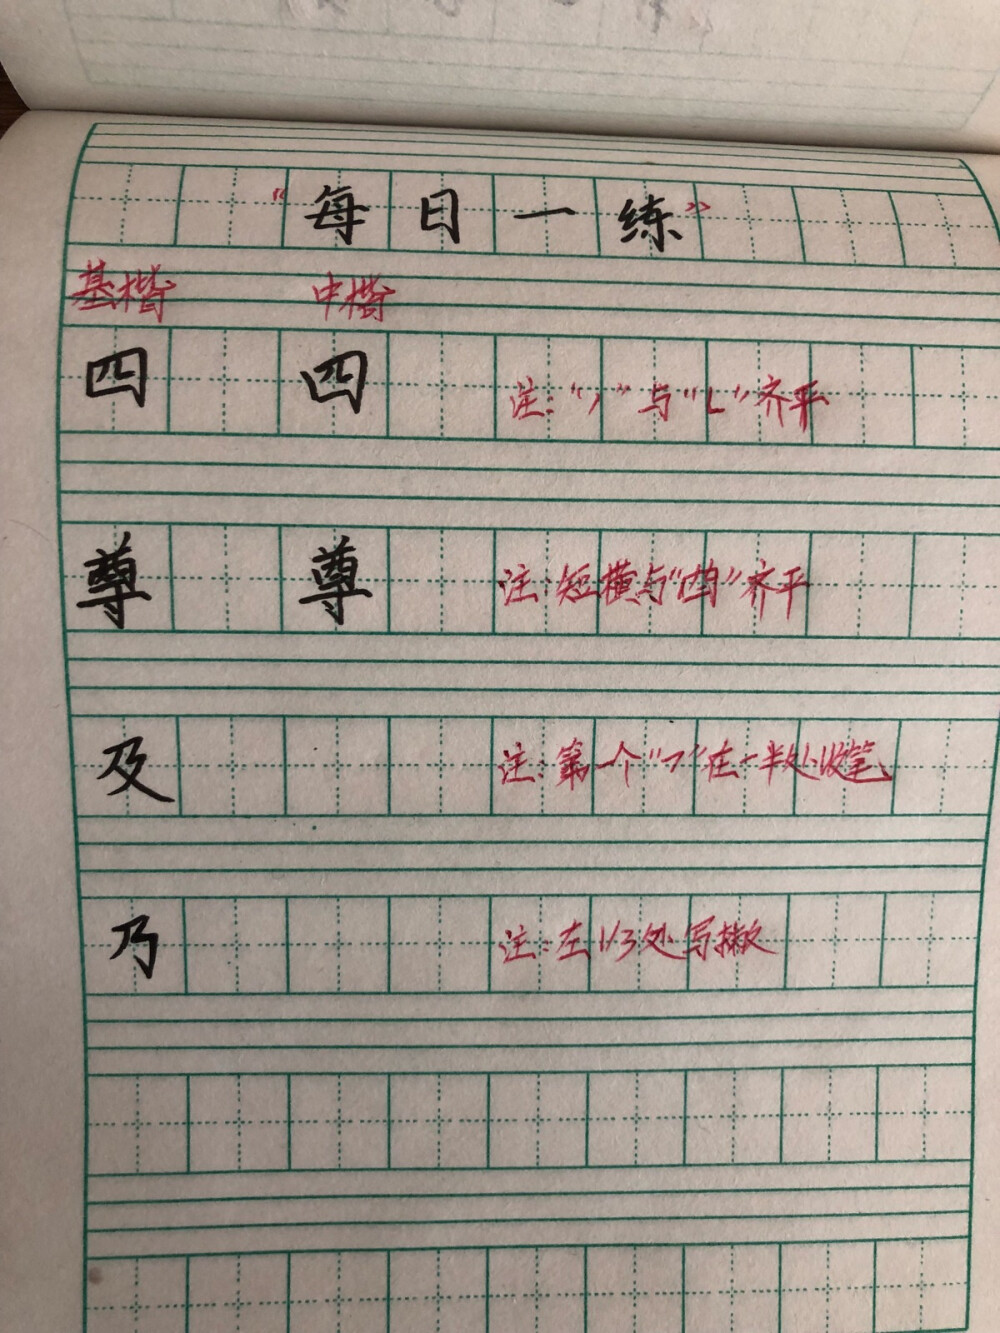 “每日一练”
基楷 中楷
四 四 注：“丿”与“乚”齐平
尊 尊 注：短横与“酋”齐平
及 注：第一个“㇇”在一半处收笔
乃 注：左1/3处写撇